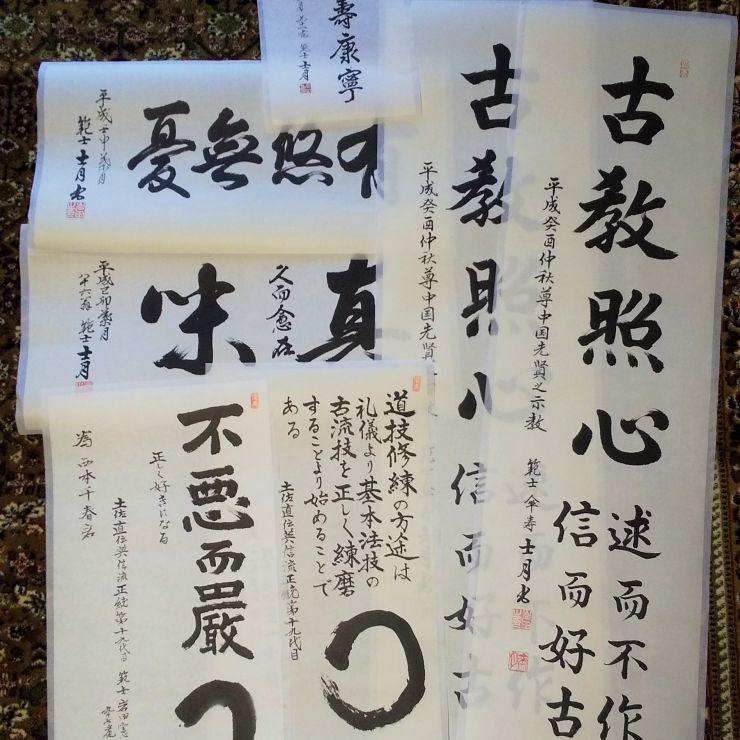 壽康寧
範士 士月
平成壬申
範士 士月書
憂無悠有
平成己卯
範士 士月
味
久而愈在
真
古教照心
信而好古
平成癸酉仲秋尊中国先賢
古教照心
述而不作
信而好古
平成癸酉仲秋尊中国先賢之示教
範士 傘寿 士月書
道技修練の方途は
礼儀より基本法技の
古流技を正しく練磨
することより始めることで
ある
土佐直伝英信流正統第十九代目
不悪而嚴
正しく好きになる
土佐直伝英信流正統第十九代目 範士 岩田憲一
為 西本千春君